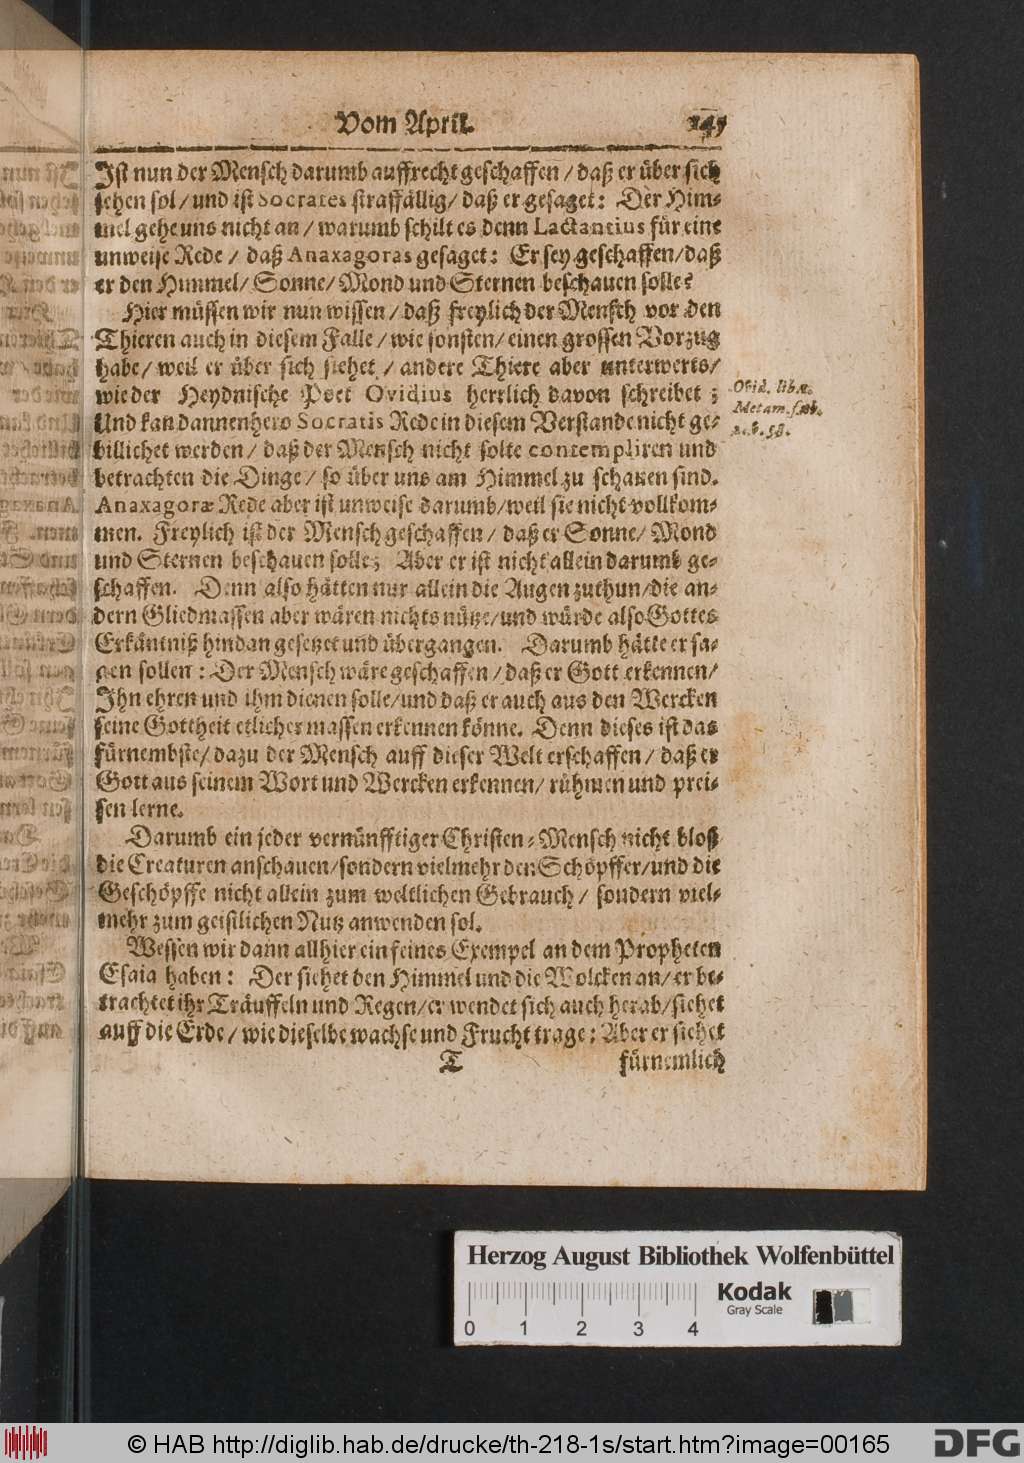 Vom April. 145
Ist nun der Mensch darumb auffrecht geschaffen / daß er über sich
sehen sol / und ist Socrates straffällig / daß er gesaget: Der Him-
mel gehe uns nicht an / warumb schilt es denn Lactantius für eine
unweise Rede / daß Anaxagoras gesaget: Er sey geschaffen / daß
er den Himmel / Sonne / Mond und Sternen beschauen solle?
Hier müssen wir nun wissen / daß freylich der Mensch vor den
Thieren auch in diesem Falle / wie sonsten / einen grossen Vorzug
habe / weil er über sich siehet / andere Thiere aber unterwerts /
wie der Heydnische Poet Ovidius herrlich davon schreibet;
Ovid. lib. 1.
Metam. fab.
2. v. 58.
Und kan dannenhero Socratis Rede in diesem Verstande nicht ge-
billichet werden / daß der Mensch nicht solte contempliren und
betrachten die Dinge / so über uns am Himmel zu schauen sind.
Anaxagoræ Rede aber ist unweise darumb / weil sie nicht vollkom-
men. Freylich ist der Mensch geschaffen / daß er Sonne / Mond
und Sternen beschauen solle; Aber er ist nicht allein darumb ge-
schaffen. Denn also hätten nur allein die Augen zuthun / die an-
dern Gliedmassen aber wären nichts nütze / und würde also Gottes
Erkäntniß hindan gesetzet und übergangen. Darumb hätte er sa-
gen sollen: Der Mensch wäre geschaffen / daß er Gott erkennen /
Ihn ehren und ihm dienen solle / und daß er auch aus den Wercken
seine Gottheit etlicher massen erkennen könne. Denn dieses ist das
fürnembste / dazu der Mensch auff dieser Welt erschaffen / daß er
Gott aus seinem Wort und Wercken erkennen / rühmen und prei-
sen lerne.
Darumb ein jeder vernünfftiger Christen-Mensch nicht bloß
die Creaturen anschauen / sondern vielmehr den Schöpffer / und die
Geschöpffe nicht allein zum weltlichen Gebrauch / sondern viel-
mehr zum geistlichen Nutz anwenden sol.
Wessen wir dann allhier ein feines Exempel an dem Propheten
Esaia haben: Der siehet den Himmel und die Wolcken an / er be-
trachtet ihr Träuffeln und Regen / er wendet sich auch herab / siehet
auff die Erde / wie dieselbe wachse und Frucht trage: Aber er siehet
T fürnemlich
Herzog August Bibliothek Wolfenbüttel
Kodak
Gray Scale
0 1 2 3 4
© HAB http://diglib.hab.de/drucke/th-218-1s/start.htm?image=00165
DFG